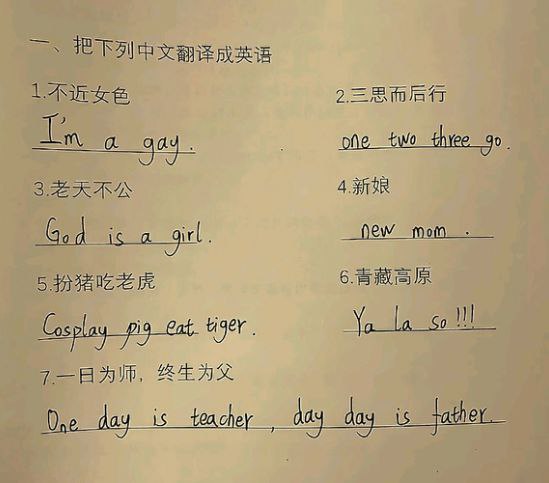 一、把下列中文翻译成英语
1.不近女色
I'm a gay.
2.三思而后行
one two three go.
3.老天不公
God is a girl.
4.新娘
new mom .
5.扮猪吃老虎
Cosplay pig eat tiger.
6.青藏高原
Ya la so !!!
7.一日为师，终生为父
One day is teacher , day day is father.